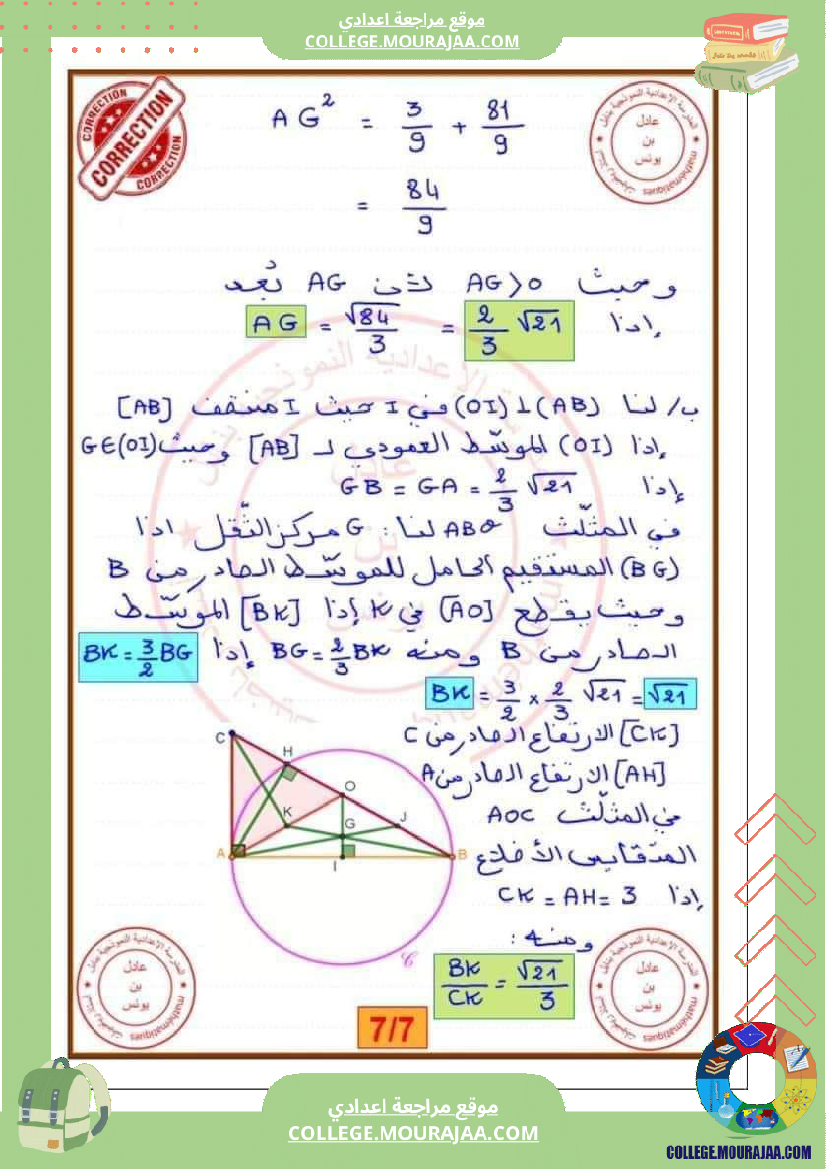 موقع مراجعة اعدادي
COLLEGE.MOURAJAA.COM
CORRECTION
CORRECTION
CORRECTION
عادل
بن
يونس
AG² = 3/9 + 81/9
= 84/9
وحيث AG>0 لأن AG بُعد
إذا AG = √84/3 = 2/3 √21
ب/ لنا (AB)⊥(OI) في I حيث I منتصف [AB]
إذا (OI) الموسّط العمودي لـ [AB] وحيث G∈(OI)
إذا GB = GA = 2/3 √21
في المثلّث ABO لنا: G مركز الثّقل اذا
(BG) المستقيم الحامل للموسّط الصادر من B
وحيث يقطع [AO] في K إذا [BK] الموسّط
الصادر من B ومنه BG = 2/3 BK إذا BK = 3/2 BG
BK = 3/2 × 2/3 √21 = √21
[CK] الارتفاع الصادر من C
[AH] الارتفاع الصادر من A
في المثلّث AOC
المتقايس الأضلاع
إذا CK = AH = 3
ومنه :
BK/CK = √21/3
C
H
O
K
G
J
A
I
B
𝒞
عادل
بن
يونس
عادل
بن
يونس
7/7
موقع مراجعة اعدادي
COLLEGE.MOURAJAA.COM
COLLEGE.MOURAJAA.COM